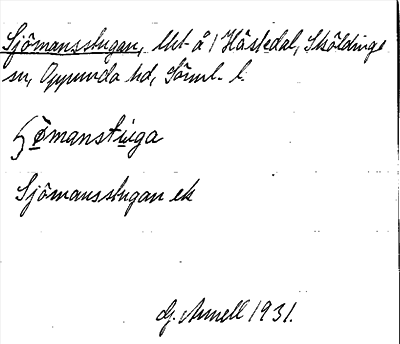 Sjömansstugan, lht å 1 Hästedal, Sköldinge
sn, Oppunda hd, Söml. l.
ömanstuga
Sjömansstugan ek
G. Arnell 1931.